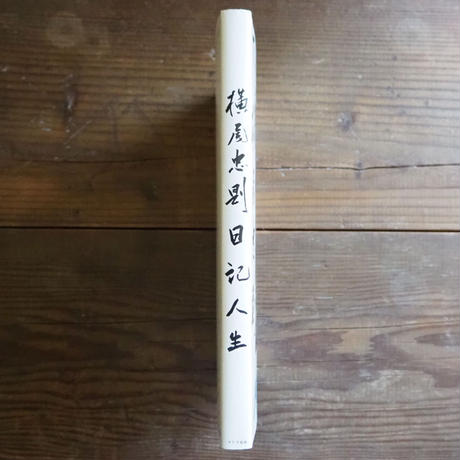 横尾忠則日記人生